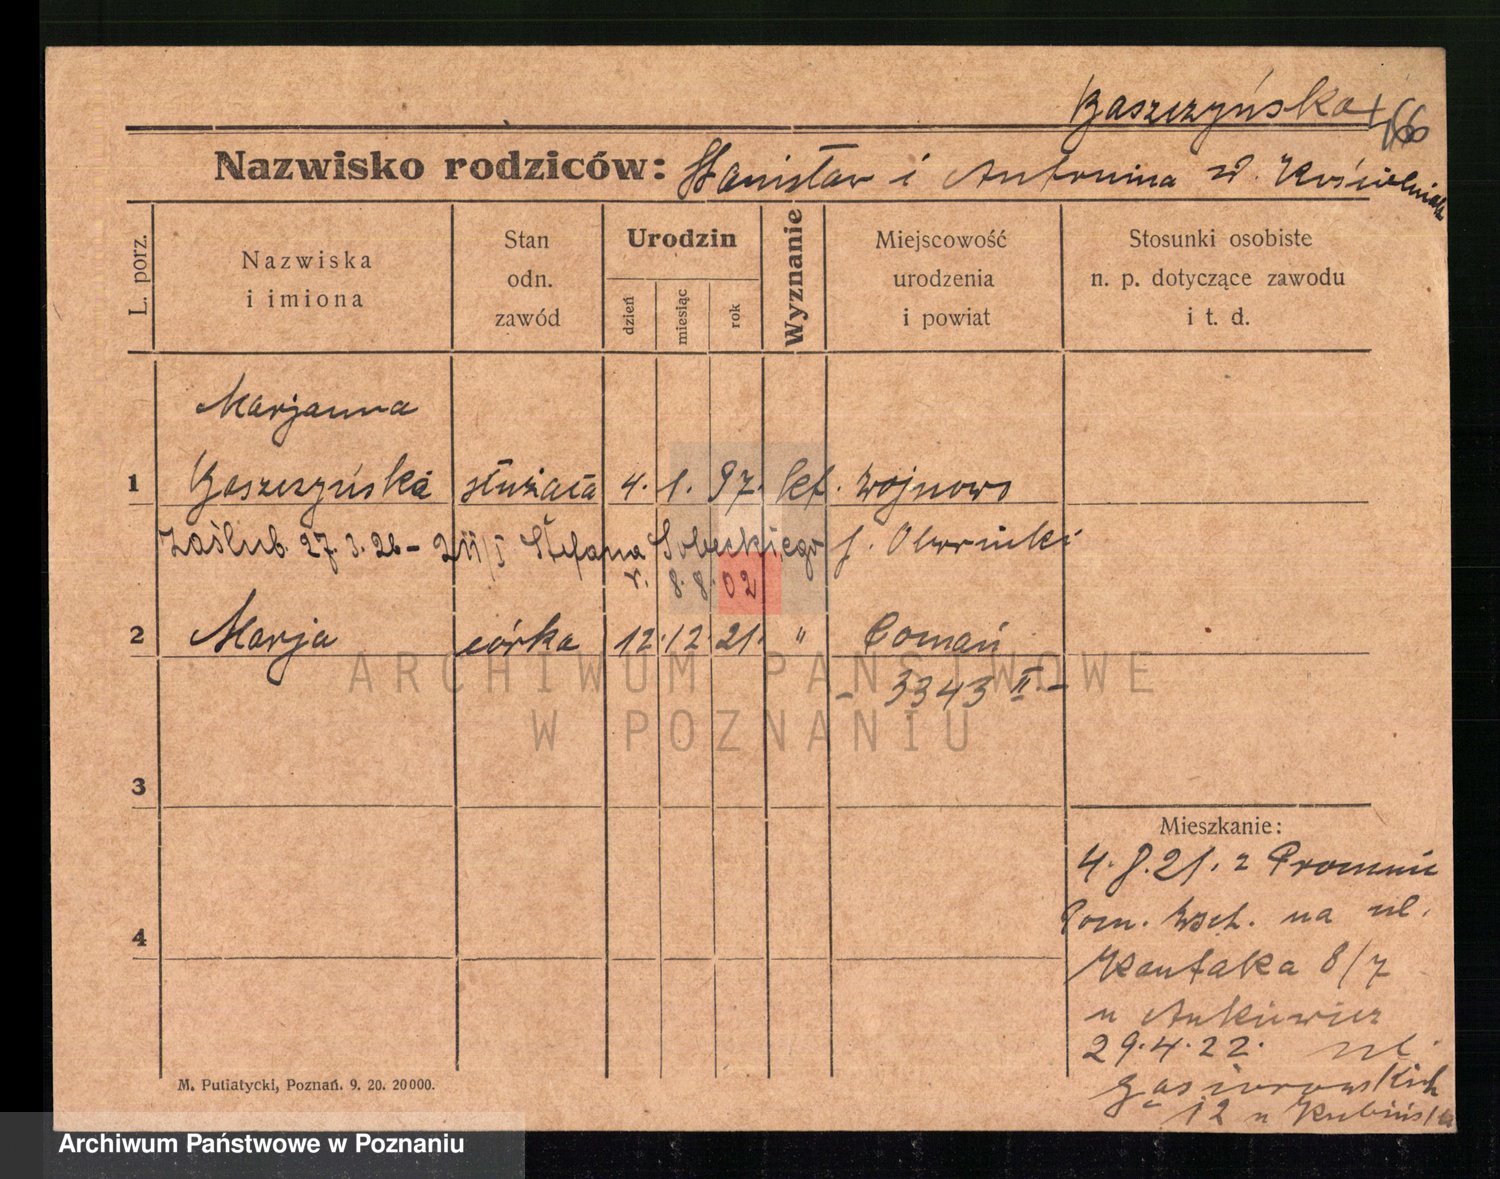 Baszczyńska
Nazwisko rodziców: Stanisław i Antonina
L. porz.
Nazwiska
i imiona
Stan
odn.
zawód
Urodzin
dzień
miesiąc
rok
Wyznanie
Miejscowość
urodzenia
i powiat
Stosunki osobiste
n. p. dotyczące zawodu
i t. d.
Marjanna
1 Baszczyńska służąca 4. 1. 97. kat. Wojnowo
Zaślub. 27. 3. 26 - Stefana Sobeckiego p. Oborniki
r. 8. 8. 02
2 Marja córka 12. 12. 21. " Poznań
- 3343 II. -
ARCHIWUM PAŃSTWOWE
W POZNANIU
3
Mieszkanie:
4. 8. 21. z
4
na ul.
Kantaka 8/7
u
29. 4. 22. ul.
Gąsiorowskich
12 u
M. Putiatycki, Poznań. 9. 20. 20000.
Archiwum Państwowe w Poznaniu